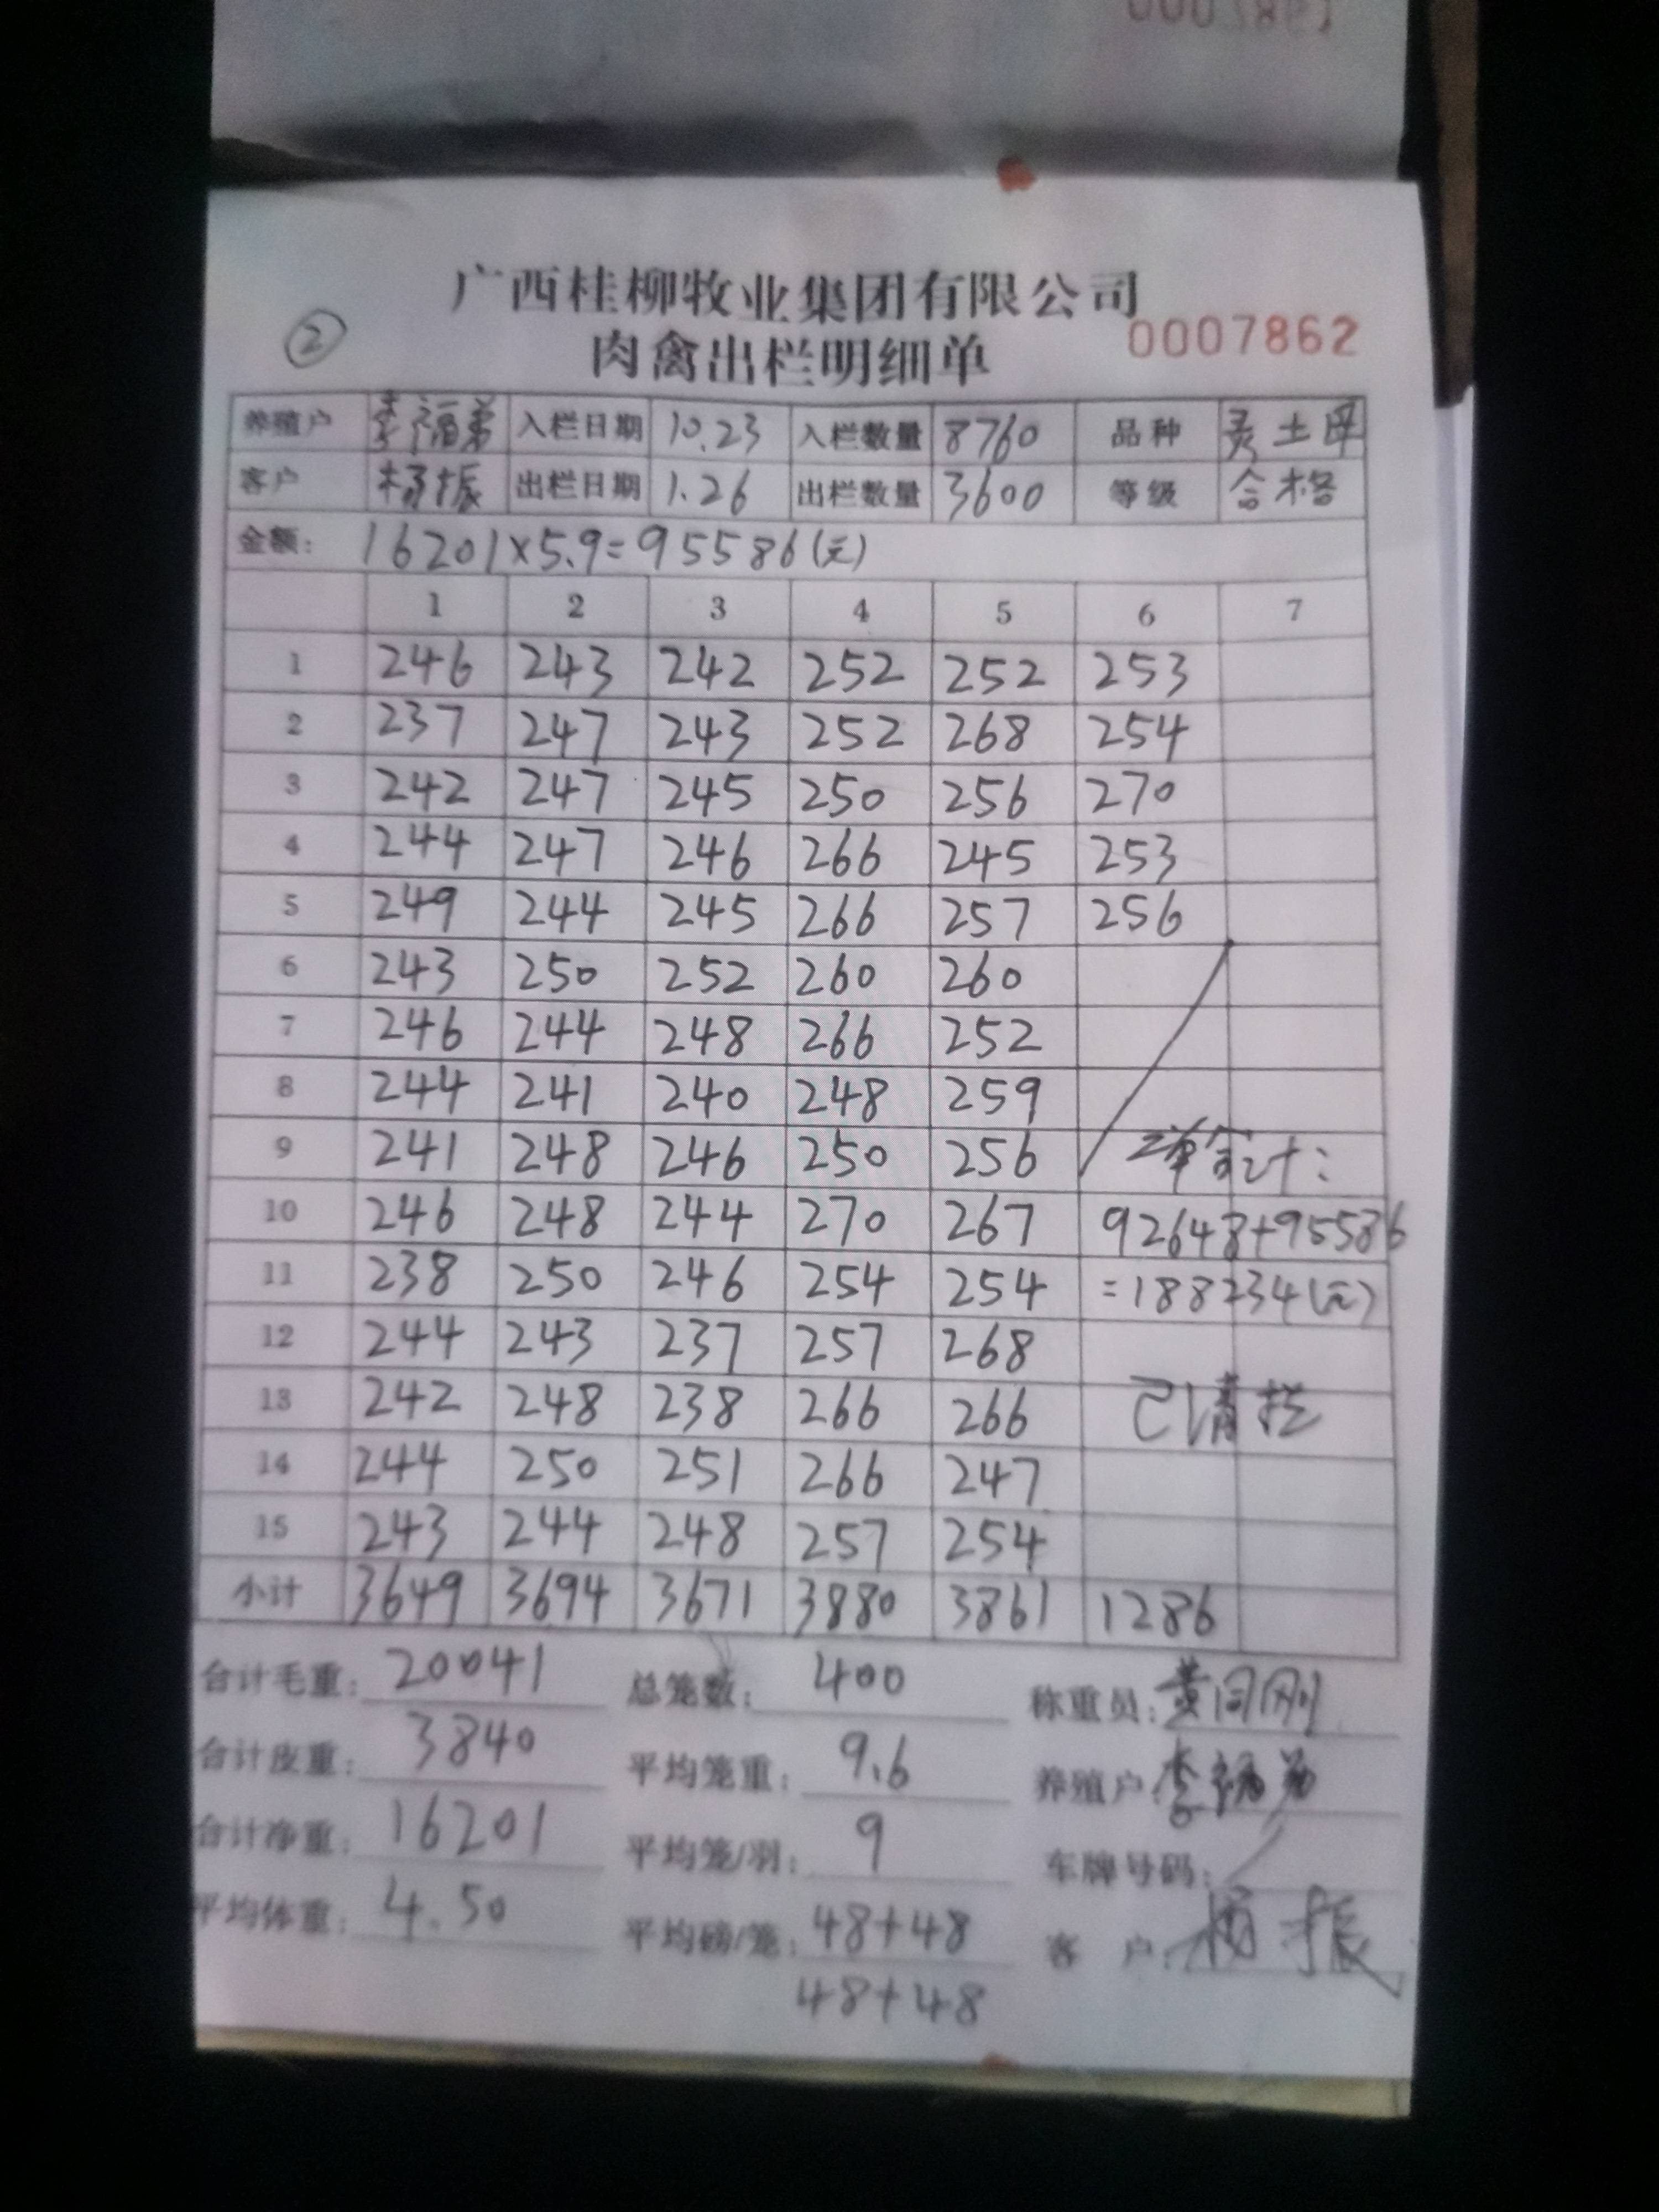 广西桂柳牧业集团有限公司
② 肉禽出栏明细单 0007862
养殖户 李福弟 入栏日期 10.23 入栏数量 8760 品种 灵土
客户 杨振 出栏日期 1.26 出栏数量 3600 等级 合格
金额: 16201×5.9=95586(元)
1 2 3 4 5 6 7
1 246 243 242 252 252 253
2 237 247 243 252 268 254
3 242 247 245 250 256 270
4 244 247 246 266 245 253
5 249 244 245 266 257 256
6 243 250 252 260 260
7 246 244 248 266 252
8 244 241 240 248 259
9 241 248 246 250 256 合计:
10 246 248 244 270 267 92648+95586
11 238 250 246 254 254 =188234(元)
12 244 243 237 257 268
13 242 248 238 266 266 已清栏
14 244 250 251 266 247
15 243 244 248 257 254
小计 3649 3694 3671 3880 3861 1286
合计毛重: 20041 总笼数: 400 称重员: 黄同刚
合计皮重: 3840 平均笼重: 9.6 养殖户: 李福弟
合计净重: 16201 平均笼/羽: 9 车牌号码: /
平均体重: 4.50 平均磅/笼: 48+48 客户: 杨振
48+48